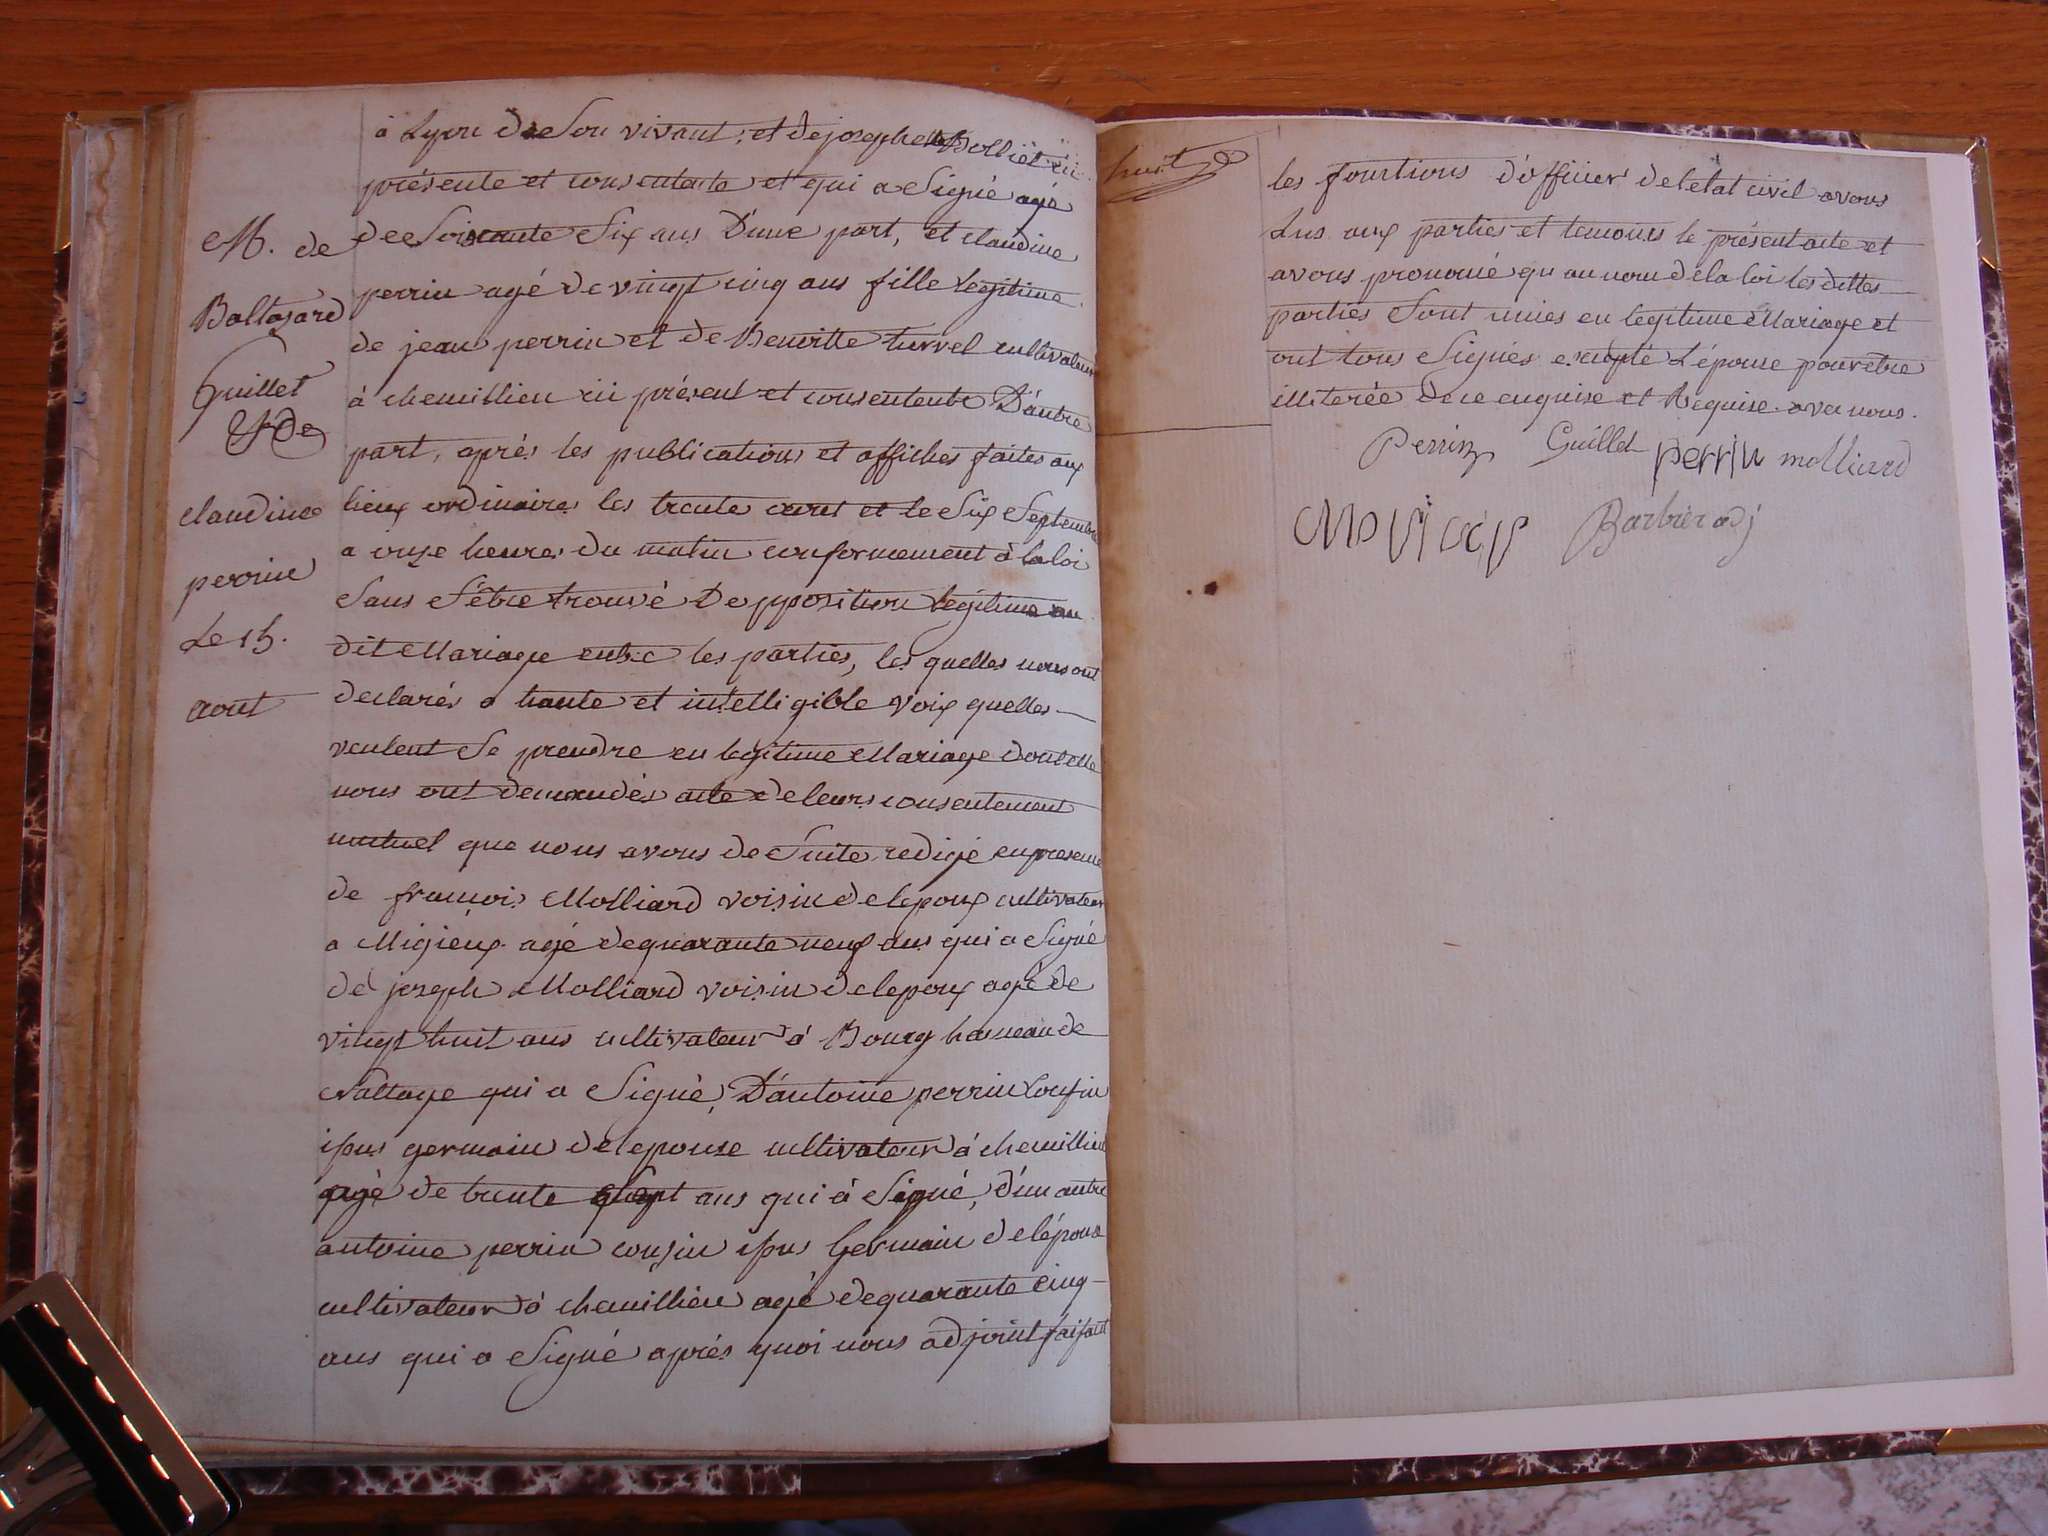 à Lyon de Son vivant, et de josephe Bolliet ici
présente et consentente et qui a Signé agé
de Soixante Six ans D'une part, et claudine
perrin agé de vingt cinq ans fille legitime
de jean perrin et de Benoitte turvel cultivateur
à chemillieu ici présent et consentente D'autre
part, aprés les publications et affiches faites aux
lieux ordinaires les trente aout et le Six Septembre
a onze heures du matin conformement à la loi
Sans S'être trouvé Dopposition legitime au
dit Mariage entre les parties, les quelles nous ont
declarés a haute et intelligible voix quelles
veulent Se prendre en legitime Mariage dont elle
nous ont demandés acte de leurs consentement
mutuel que nous avons de Suite redigé en presence
de françois Molliard voisin de lepoux cultivateur
a Migieux agé de quarante neuf ans qui a Signé
de joseph Molliard voisin de lepoux agé de
vingt huit ans cultivateur à Bourg hameau de
Nattage qui a Signé, D'antoine perrin Cousin
issus germain de lepouse cultivateur à chemillieu
agé de trente ans qui à Signé, d'un autre
antoine perrin cousin issus Germain de lépouse
cultivateur à chemillieu agé de quarante cinq
ans qui a Signé aprés quoi nous adjoint faisant
M. de
Baltazard
Guillet
& de
claudine
perrin
Le 15.
aout
huit
les fonctions d'officier de letat civil avons
Lus aux parties et temoins le présent acte et
avons prononcé qu au nom de la loi les dittes
parties Sont unies en legitime Mariage et
ont tous Signés excepté L'épouse pour etre
illiterée de ce enquise et Requise avec nous.
Perrin Guillet perrin molliard
Barbier adj